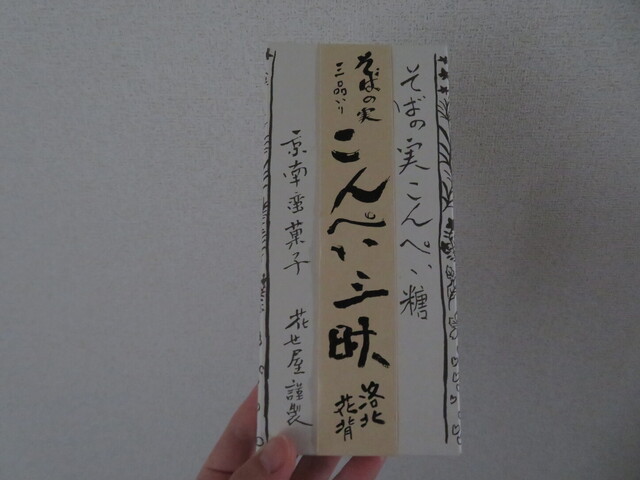 そばの実こんぺい糖
そばの実
三品入り
こんぺい三昧
洛北
花背
京南蛮菓子 花せ屋謹製